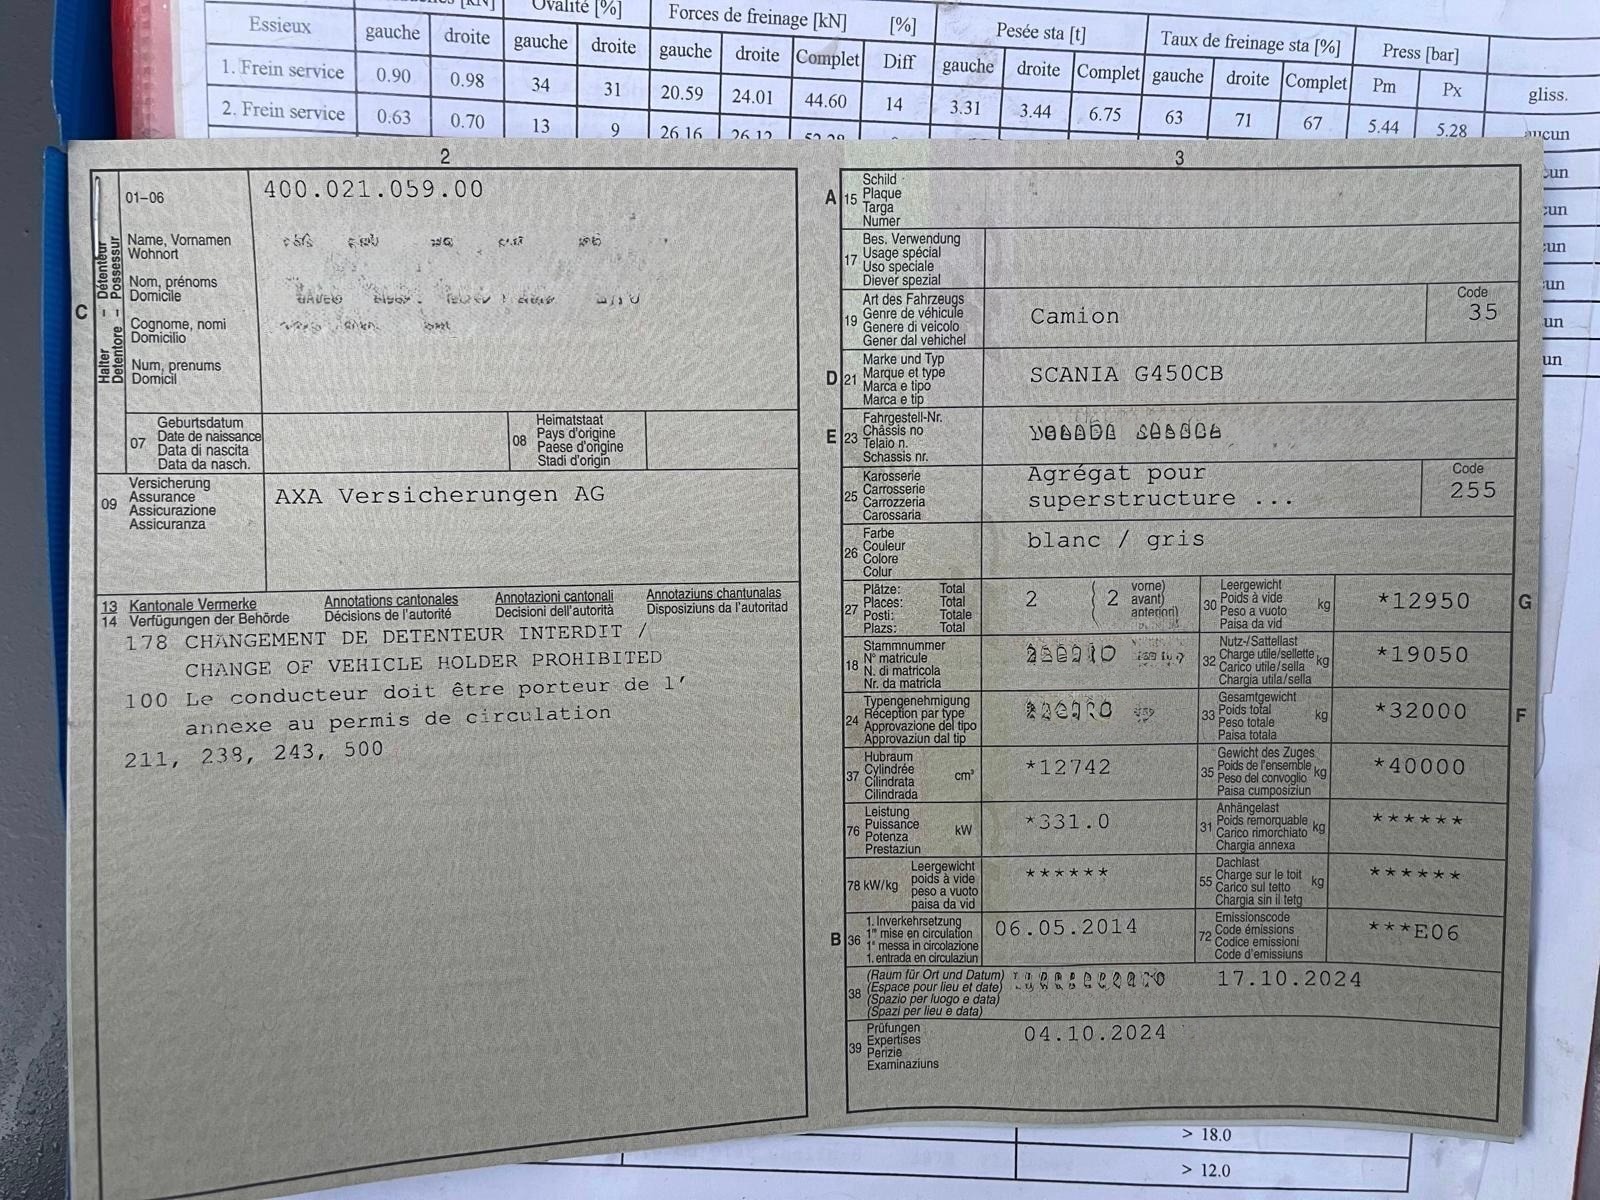 Essieux
Ovalité [%]
Forces de freinage [kN]
[%]
Pesée sta [t]
Taux de freinage sta [%]
Press [bar]
gauche droite gauche droite gauche droite Complet Diff gauche droite Complet gauche droite Complet Pm Px gliss.
1. Frein service 0.90 0.98 34 31 20.59 24.01 44.60 14 3.31 3.44 6.75 63 71 67 5.44 5.28 aucun
2. Frein service 0.63 0.70 13 9 26.16 26.12
2
01–06
400.021.059.00
C
Halter – Détenteur
Detentore – Possessur
Name, Vornamen
Wohnort
Nom, prénoms
Domicile
Cognome, nomi
Domicilio
Num, prenums
Domicil
07
Geburtsdatum
Date de naissance
Data di nascita
Data da nasch.
08
Heimatstaat
Pays d'origine
Paese d'origine
Stadi d'origin
09
Versicherung
Assurance
Assicurazione
Assicuranza
AXA Versicherungen AG
13 Kantonale Vermerke Annotations cantonales Annotazioni cantonali Annotaziuns chantunalas
14 Verfügungen der Behörde Décisions de l'autorité Decisioni dell'autorità Disposiziuns da l'autoritad
178 CHANGEMENT DE DETENTEUR INTERDIT /
CHANGE OF VEHICLE HOLDER PROHIBITED
100 Le conducteur doit être porteur de l'
annexe au permis de circulation
211, 238, 243, 500
3
A
15
Schild
Plaque
Targa
Numer
17
Bes. Verwendung
Usage spécial
Uso speciale
Diever spezial
19
Art des Fahrzeugs
Genre de véhicule
Genere di veicolo
Gener dal vehichel
Camion
Code
35
D
21
Marke und Typ
Marque et type
Marca e tipo
Marca e tip
SCANIA G450CB
E
23
Fahrgestell-Nr.
Châssis no
Telaio n.
Schassis nr.
25
Karosserie
Carrosserie
Carrozzeria
Carossaria
Agrégat pour
superstructure ...
Code
255
26
Farbe
Couleur
Colore
Colur
blanc / gris
27
Plätze: Total
Places: Total
Posti: Totale
Plazs: Total
2
( 2
vorne)
avant)
anteriori)
30
Leergewicht
Poids à vide
Peso a vuoto
Paisa da vid
kg
*12950
G
18
Stammnummer
N° matricule
N. di matricola
Nr. da matricla
32
Nutz-/Sattellast
Charge utile/sellette
Carico utile/sella
Chargia utila/sella
kg
*19050
24
Typengenehmigung
Réception par type
Approvazione del tipo
Approvaziun dal tip
33
Gesamtgewicht
Poids total
Peso totale
Paisa totala
kg
*32000
F
37
Hubraum
Cylindrée
Cilindrata
Cilindrada
cm³
*12742
35
Gewicht des Zuges
Poids de l'ensemble
Peso del convoglio
Paisa cumposiziun
kg
*40000
76
Leistung
Puissance
Potenza
Prestaziun
kW
*331.0
31
Anhängelast
Poids remorquable
Carico rimorchiato
Chargia annexa
kg
******
78 kW/kg
Leergewicht
poids à vide
peso a vuoto
paisa da vid
******
55
Dachlast
Charge sur le toit
Carico sul tetto
Chargia sin il tetg
kg
******
B
36
1. Inverkehrsetzung
1re mise en circulation
1a messa in circolazione
1. entrada en circulaziun
06.05.2014
72
Emissionscode
Code émissions
Codice emissioni
Code d'emissiuns
***E06
38
(Raum für Ort und Datum)
(Espace pour lieu et date)
(Spazio per luogo e data)
(Spazi per lieu e data)
17.10.2024
39
Prüfungen
Expertises
Perizie
Examinaziuns
04.10.2024
> 18.0
> 12.0